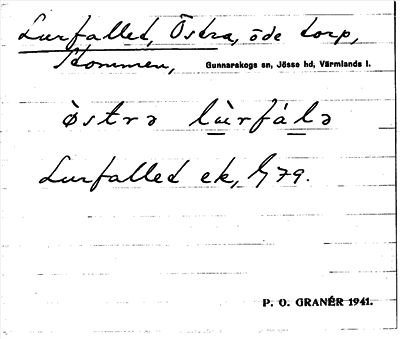 Lurfallet, Östra, öde torp,
Stommen, Gunnarskogs sn, Jösse hd, Värmlands l.
östrə lùrfálə
Lurfallet ek, 79.
P. O. GRANÉR 1941.